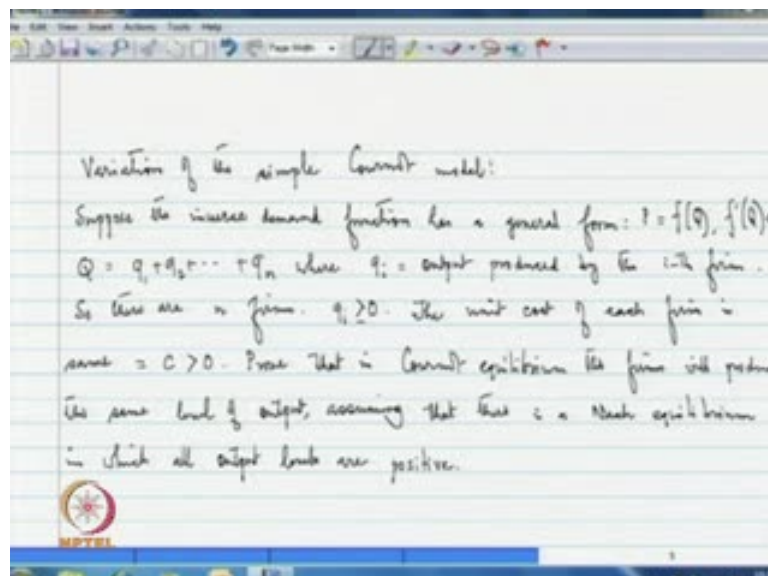 Edit View Insert Actions Tools Help
Page Width
Variation of the simple Cournot model:
Suppose the inverse demand function has a general form: P = f(Q), f'(Q)
Q = q₁+q₂+⋯+qₙ where qᵢ = output produced by the i-th firm.
So there are n firms. qᵢ≥0. The unit cost of each firm is
same = C > 0. Prove that in Cournot equilibrium the firms will produ
the same level of output, assuming that there is a Nash equilibrium
in which all output levels are positive.
NPTEL